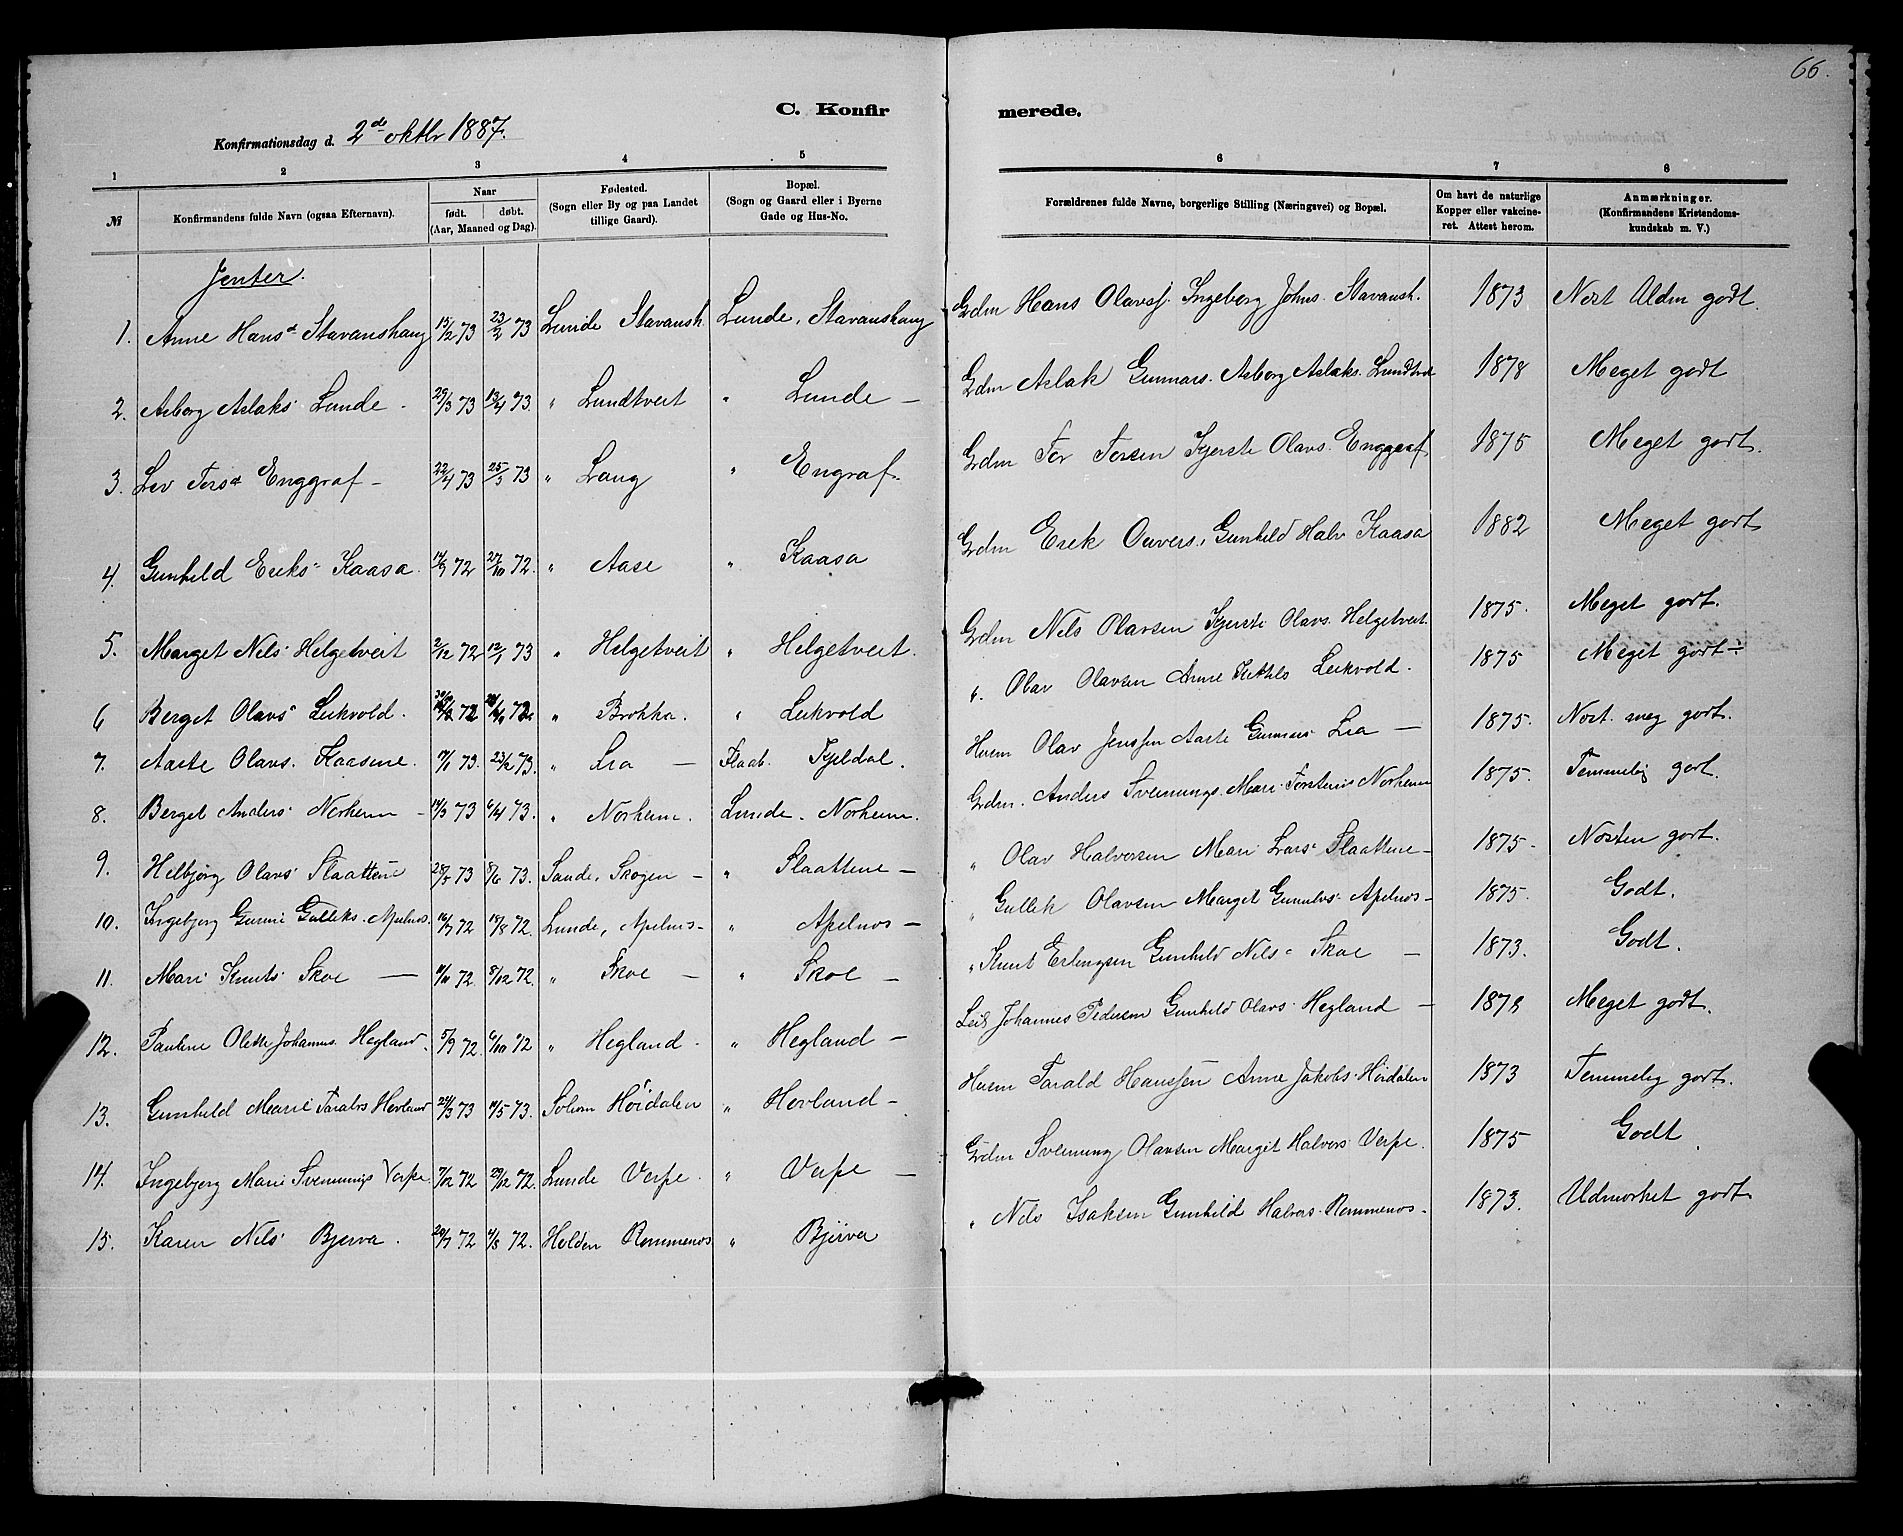 66.
C. Konfir merede.
Konfirmationsdag d. 2d oktbr 1887.
1 2 3 4 5 6 7 8
№
Konfirmandens fulde Navn (ogsaa Efternavn).
Naar
født. døbt.
(Aar, Maaned og Dag).
Fødested.
(Sogn eller By og paa Landet
tillige Gaard).
Bopæl.
(Sogn og Gaard eller i Byerne
Gade og Hus-No.
Forældrenes fulde Navne, borgerlige Stilling (Næringsvei) og Bopæl.
Om havt de naturlige
Kopper eller vakcine-
ret. Attest herom.
Anmærkninger.
(Konfirmandens Kristendoms-
kundskab m. V.)
Jenter.
1. Anne Hansd Stavanshaug 15/2 73 23/2 73 Lunde Stavansh. Lunde, Stavanshaug Grdm Hans Olavs. Ingeborg Johns. Stavansh. 1873 Godt.
2. Asborg Aslaks Lunde - 29/3 73 13/4 73. " Lundtveit " Lunde - Grdm Aslak Gunnars. Asborg Aslaks. 1878 Meget godt
3. Liv Torsd Enggraf - 22/4 73 25/5 73 " Laug " Engraf. Grdm Tor Torsen Kjersti Olavs. Enggraf 1875 Meget godt.
4. Gunhild Eriks Kaasa. 72 27/10 72. " Aase " Kaasa Grdm Erik Gunhild Halv Kaasa 1882 Meget godt
5. Marget Nils Helgetveit 2/12 72 12/1 73 " Helgetveit " Helgetveit. Grdm Nils Olavsen Kjersti Olavs. Helgetveit. 1875. Meget godt.
6 Berget Olavs Leikvold. 72 72. " Brokka. " Leikvold ". Olav Olavsen Anne Kittils Leikvold. 1875 Meget godt -
7. Aaste Olavs. Kaasene. 73. 23/2 73. " Lia - Flaab. Kjeldal. Husm Olav Jenssen Aaste Gunnars Lia - 1875. Nest. meg godt.
8. Berget Anders Norheim - 14/3 73 6/4 73. " Norheim. Lunde. Norheim. Grdm. Anders Svenungs. Mari Torsteins Norheim 1875. Temmelig godt.
9. Helbjørg Olavs Slaattene 28/5 73 8/6 73. Sande, Skogen - " Slaattene - " Olav Halvorsen Mari Lars Slaattene - 1875. Nesten godt.
10. Ingebjorg Gunne Gulleks. Apelnes. 16/7 72 18/8 72. Lunde, Apelnes - " Apelnos - " Gullik Olavsen Marget Gunnlvs. Apelnos - 1875. Godt.
11. Mari Knuts Skoe - 72. 8/12 72. " Skoe - " Skoe - " Knut Erlingsen Gunhild Nils Skoe - 1873. Godt.
12. Pauline Olette Johannes. Hegland. 5/9 72. 6/10 72 " Hegland. " Hegland - Johannes Pedersen Gunhild Olavs. Hegland - Meget godt.
13. Gunhild Marie Taralds Hovland 24/3 73 11/5 73. Solum Høidalen " Hovland - Husm Tarald Hanssen Anne Jakobs. Høidalen 1873 Temmelig godt.
14. Ingebjorg Marie Svennungs Verpe. 7/12 72 29/12 72. Lunde Verpe. " Verpe - Grdm Svennung Olavsen Marget Halvors Verpe. 1875 Godt.
15. Karen Nils Bjerva. 20/7 72 4/8 72. Holden Rommenos " Bjerva " Nils Isaksen Gunhild Halvors. Rommenos - 1873. Udmerket godt